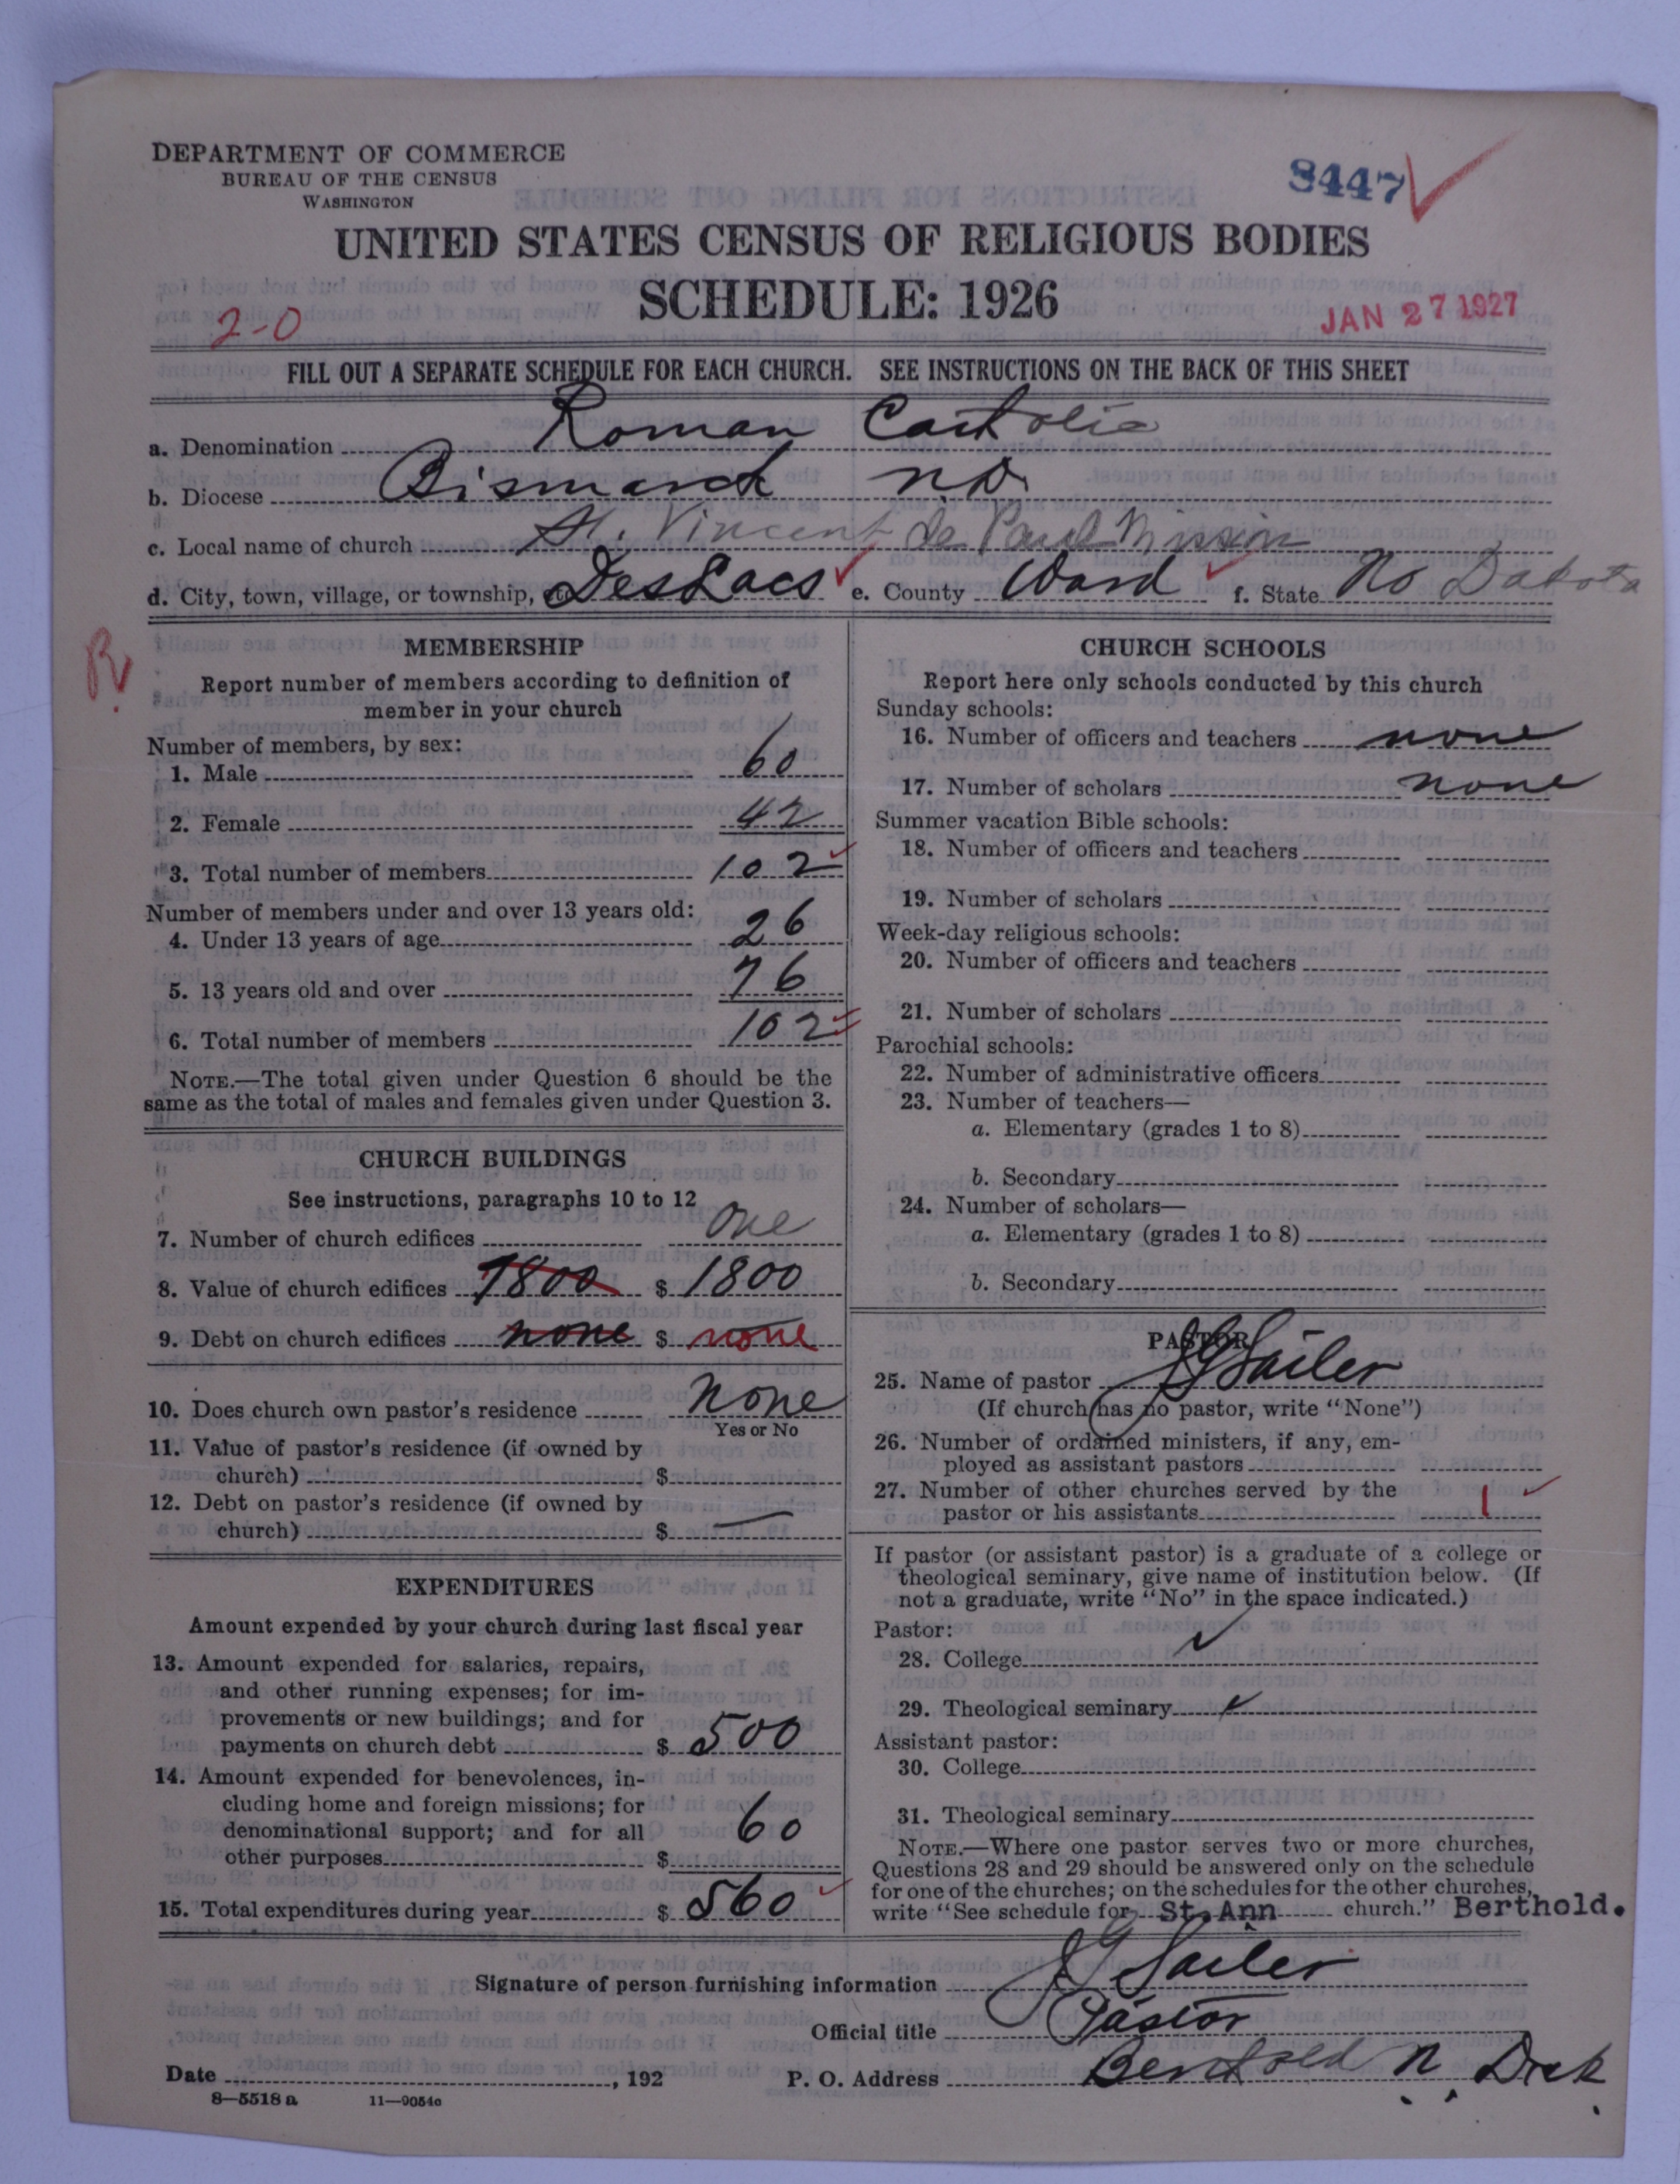 DEPARTMENT OF COMMERCE
BUREAU OF THE CENSUS
WASHINGTON
8447
UNITED STATES CENSUS OF RELIGIOUS BODIES
SCHEDULE: 1926
2-0
JAN 27 1927
FILL OUT A SEPARATE SCHEDULE FOR EACH CHURCH. SEE INSTRUCTIONS ON THE BACK OF THIS SHEET
a. Denomination Roman Catholic
b. Diocese Bismarck N.D.
c. Local name of church St. Vincent de Paul Mission
d. City, town, village, or township, etc. Des Lacs e. County Ward f. State No Dakota
R
MEMBERSHIP
Report number of members according to definition of
member in your church
Number of members, by sex:
1. Male 60
2. Female 42
3. Total number of members 102
Number of members under and over 13 years old:
4. Under 13 years of age 26
5. 13 years old and over 76
6. Total number of members 102
NOTE.—The total given under Question 6 should be the
same as the total of males and females given under Question 3.
CHURCH BUILDINGS
See instructions, paragraphs 10 to 12
7. Number of church edifices one
8. Value of church edifices 1800 $ 1800
9. Debt on church edifices none $ none
10. Does church own pastor's residence none
Yes or No
11. Value of pastor's residence (if owned by
church) $
12. Debt on pastor's residence (if owned by
church) $ —
EXPENDITURES
Amount expended by your church during last fiscal year
13. Amount expended for salaries, repairs,
and other running expenses; for im-
provements or new buildings; and for
payments on church debt $ 500
14. Amount expended for benevolences, in-
cluding home and foreign missions; for
denominational support; and for all
other purposes $ 60
15. Total expenditures during year $ 560
CHURCH SCHOOLS
Report here only schools conducted by this church
Sunday schools:
16. Number of officers and teachers none
17. Number of scholars none
Summer vacation Bible schools:
18. Number of officers and teachers
19. Number of scholars
Week-day religious schools:
20. Number of officers and teachers
21. Number of scholars
Parochial schools:
22. Number of administrative officers
23. Number of teachers—
a. Elementary (grades 1 to 8)
b. Secondary
24. Number of scholars—
a. Elementary (grades 1 to 8)
b. Secondary
PASTOR
25. Name of pastor J G Sailer
(If church has no pastor, write "None")
26. Number of ordained ministers, if any, em-
ployed as assistant pastors
27. Number of other churches served by the
pastor or his assistants 1
If pastor (or assistant pastor) is a graduate of a college or
theological seminary, give name of institution below. (If
not a graduate, write "No" in the space indicated.)
Pastor:
28. College ✓
29. Theological seminary ✓
Assistant pastor:
30. College
31. Theological seminary
NOTE.—Where one pastor serves two or more churches,
Questions 28 and 29 should be answered only on the schedule
for one of the churches; on the schedules for the other churches,
write "See schedule for St. Ann church." Berthold.
Signature of person furnishing information J G Sailer
Official title Pastor
Date , 192 P. O. Address Berthold N. Dak
8—5518 a 11—9054c